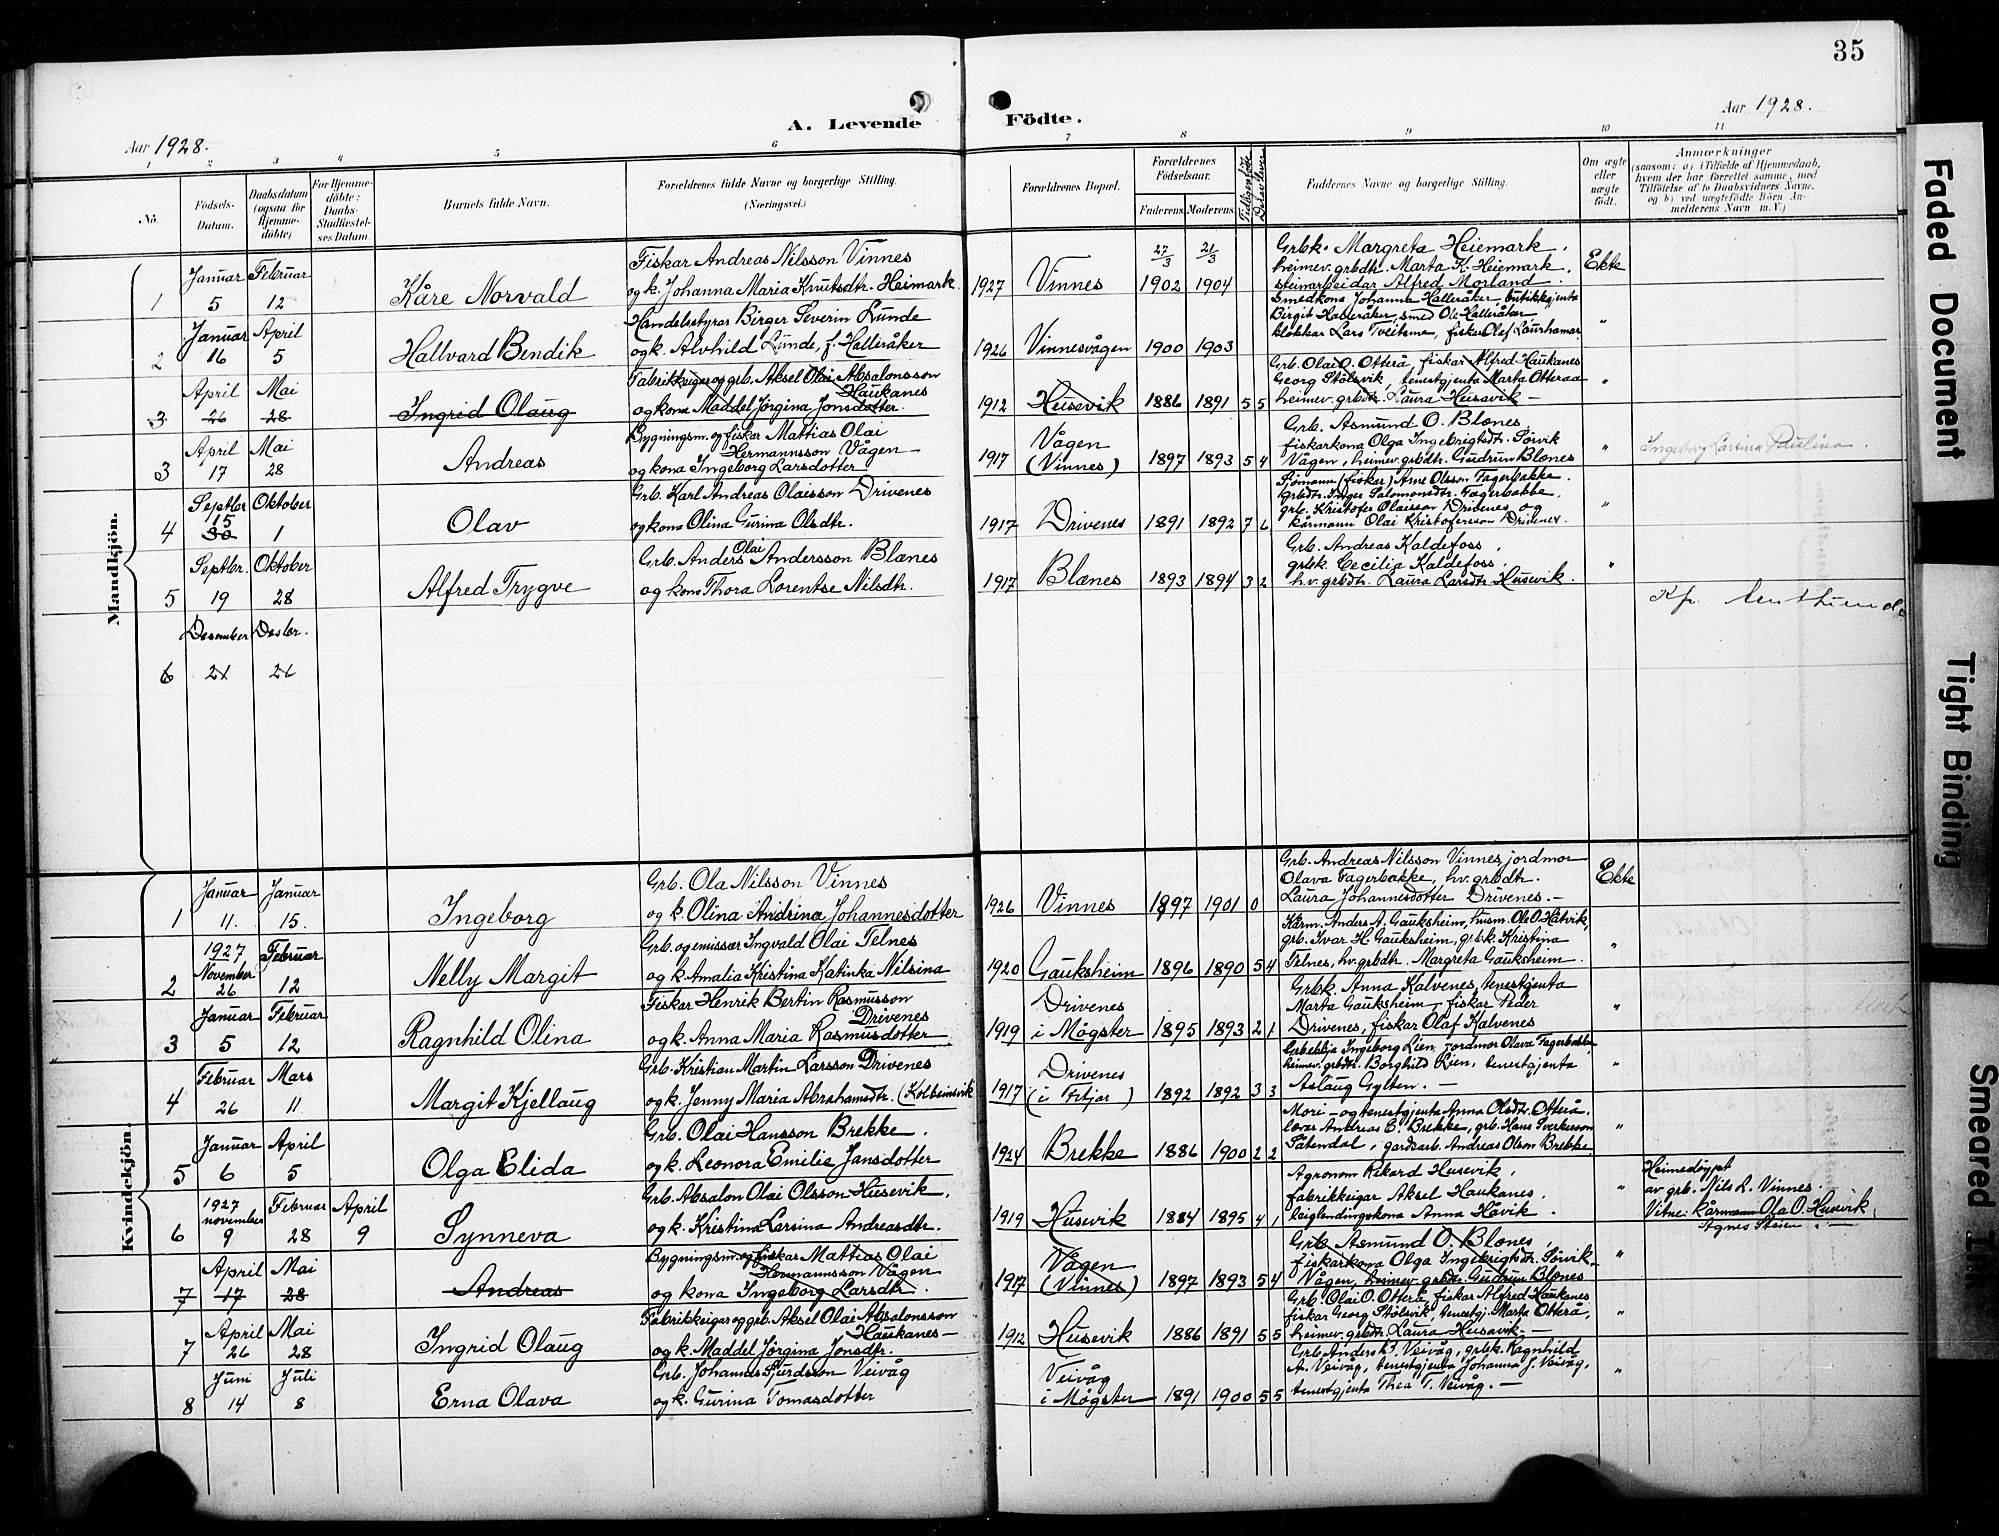 35
A. Levende Födte.
Aar 1928.
Aar 1928.
1 2 3 4 5 6 7 8 9 10 11
No.
Födsels-Datum.
Daabsdatum (ogsaa for Hjemme-döbte)
For Hjemme-döbte: Daabs-Stadfæstel-ses Datum
Barnets fulde Navn.
Forældrenes fulde Navne og borgerlige Stilling. (Næringsvei.)
Forældrenes Bopæl.
Forældrenes Födselsaar.
Faderens Moderens
Faddernes Navne og borgerlige Stilling.
Om ægte eller uægte födt.
Anmærkninger
(saasom: a) i Tilfælde af Hjemmedaab, hvem der har forrettet samme, med Tilföielse af to Daabsvidners Navne, og b) ved uægtefödte Börn An-melderens Navn m. V.)
Mandkjön.
1 Januar 5 Februar 12
Kåre Norvald
Fiskar Andreas Nilsson Vinnes
og k. Johanna Maria Knutsdtr. Heimark
1927 Vinnes 27/3 1902 21/3 1904
Grbk. Margreta Heiemark.
heimev. grbdtr. Marta K. Heiemark.
steinarbeidar Alfred Morland.
Ekte
2 Januar 16 April 5
Hallvard Bendik
Handelsstyrar Birger Severin Lunde
og k. Alvhild Lunde, f. Halleråker
1926 Vinnesvågen 1900 1903
Smedkona Johanna Halleråker, butikkgjenta
Birgit Halleråker, smed Ole Halleråker
klokkar Lars Tveitane, fiskar Olaf Laurhamar
"
3 April 26 Mai 28
Ingrid Olaug
Fabrikkeigar og grb. Aksel Olai Absalonsson
Haukanes
og kona Maddel Jørgina Jonsdotter.
1912 Husevik 1886 1891 5 5
Grb. Olai O. Otterå, fiskar Alfred Haukanes
Georg Stölsvik, tenestgjenta Marta Otteraa
heimev. grbdtr. Laura Husavik —
"
3 April 17 Mai 28
Andreas
Bygningsm. og fiskar Mattias Olai
Hermannsson Vågen
og kona Ingeborg Larsdotter
1917 Vågen (Vinnes) 1897 1893 5 4
Grb. Asmund O. Blænes
fiskarkona Olga Ingebrigtsdtr. Sörvik
Vågen, heimev. grbdtr. Gudrun Blænes
"
Ingeborg Larsina Paulina.
4 Septbr 15 30 Oktober 1
Olav
Grb. Karl Andreas Olaisson Drivenes
og kona Olina Gurina Olsdtr.
1917 Drivenes 1891 1892 7 6
Sjömann (fiskar) Arne Olsson Fagerbakke.
Grbdtr. Inger Salomonsdtr. Fagerbakke,
grb. Kristofer Olaisson Drivenes og
kårmann Olai Kristofersson Drivenes.
"
5 Septbr. 19 Oktober 28
Alfred Trygve
Grb. Anders Olai Andersson Blænes
og kona Thora Lorentse Nilsdtr.
1917 Blænes 1893 1894 3 2
Grb. Andreas Kaldefoss,
grbk. Cecilia Kaldefoss,
h.v. grbdtr. Laura Larsdtr Husevik.
"
6 Desember 21 Desbr. 21
Kvindekjön.
1 Januar 11. Januar 15.
Ingeborg
Grb. Ola Nilsson Vinnes
og k. Olina Andrina Johannesdotter
1926 Vinnes 1897 1901 0
Grb. Andreas Nilsson Vinnes, jordmor
Olava Fagerbakke, hv. grbdtr.
Laura Johannesdotter Drivenes. —
Ekte
2 1927 November 26 Februar 12
Nelly Margit
Grb. og emissær Ingvald Olai Telnes
og k. Amalia Kristina Katinka Nilsina
1920 Gauksheim 1896 1890 5 4
Kårm. Anders A. Gauksheim, husm. Ole O. Håtvik,
grb. Ivar H. Gauksheim, grbk. Kristina
Telnes, hv. grbdtr. Margreta Gauksheim.
"
3 Januar 5 Februar 12
Ragnhild Olina
Fiskar Henrik Bertin Rasmusson
Drivenes
og k. Anna Maria Rasmusdotter
1919 Drivenes i Mögster 1895 1893 2 1
Grbk. Anna Kalvenes, tenestgjenta
Marta Gauksheim, fiskar Peder
Drivenes, fiskar Olaf Kalvenes
"
4 Februar 26 Mars 11
Margit Kjellaug
Grb. Kristian Martin Larsson Drivenes
og k. Jenny Maria Abrahamsdtr. (Kolbeinsvik
1917 Drivenes (i Fitjar) 1892 1892 3 3
Grbekkja Ingeborg Lien, jordmor Olava Fagerbakke,
heimev. grbdtr. Borghild Lien, tenestgjenta
Aslaug Gylten. —
"
5 Januar 6 April 5
Olga Elida
Grb. Olai Hansson Brekke.
og k. Leonora Emilie Jansdotter
1924 Brekke 1886 1900 2 2
Mori — og tenestgjenta Anna Olsdtr. Otterå.
lærar Andreas E. Brekke, grb. Hans Sverkersson
Sätendal, gardsarb. Andreas Olson Brekke
"
6 1927 november 9 Februar 28 April 9
Synneva
Grb. Absalon Olai Olsson Husevik.
og k. Kristina Larsina Andreasdtr.
1919 Husevik 1884 1895 4 1
Agronom Rikard Husevik,
fabrikkeigar Aksel Haukanes.
leiglendingskona Anna Håvik.
"
Heimedöypt
av grb. Nils R. Vinnes.
Vitne: Kårmann Ola O. Husevik.
7 April 17 Mai 28
Andreas
Bygningsm. og fiskar Mattias Olai
Hermannsson Vågen
og kona Ingeborg Larsdtr.
1917 Vågen (Vinnes) 1897 1893 5 4
Grb. Asmund O. Blænes,
fiskarkona Olga Ingebrigtsdtr. Sörvik
Vågen, heimev. grbdtr. Gudrun Blænes
"
7 April 26 Mai 28
Ingrid Olaug
Fabrikkeigar og grb. Aksel Olai Absalonsson
Haukanes —
og k. Maddel Jörgina Jonsdtr.
1912 Husevik 1886 1891 5 5
Grb. Olai O. Otterå, fiskar Alfred Haukanes
fiskar Georg Stölsvik, tenestgj. Marta Otterå,
heimev. grbdtr. Laura Husavik —
"
8 Juni 14 Juli 8
Erna Olava
Grb. Johannes Sjurdsson Veivåg
og k. Gurina Tomasdotter
1891 1900 5 5
Veivåg i Mögster
Grb. Anders Veivåg, grbk. Ragnhild
A. Veivåg, tenestgjenta Johanna J. Veivåg,
tenestgjenta Thea T. Veivåg. —
"
Faded Document
Tight Binding
Smeared Ink